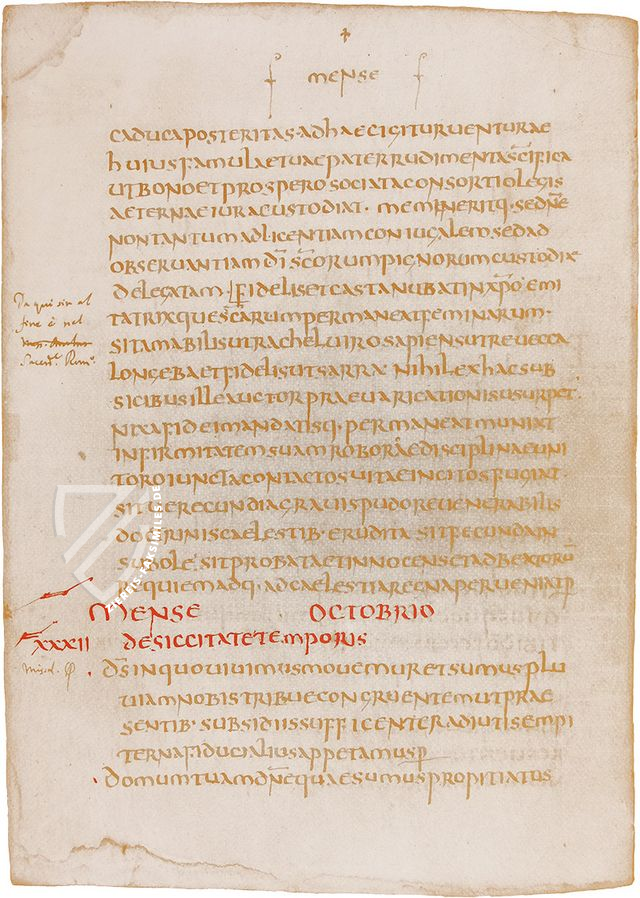 MENSE
CADUCAPOSTERITAS·ADHAECIGITURVENTURAE
HUIUSFAMULAETUAEPATERRUDIMENTASCIFICA
UTBONOETPROSPEROSOCIATACONSORTIOLEGIS
AETERNAEIURACUSTODIAT· MEMINERITQ·SEDNE
NONTANTUMADLICENTIAMCONIUGALEMSEDAD
OBSERVANTIAMDISCORUMPIGNORUMCUSTODIAE
DELEGATAM· FIDELISETCASTANUBATINXPOEMI
TATRIXQUESCARUMPERMANEATFEMINARUM·
SITAMABILISUTRACHELUIROSAPIENSUTREUECCA
LONGEBAETFIDELISUTSARRA· NIHILEXHACSUB
SICIBUSILLEAUCTORPRAEVARICATIONISUSURPET·
NIXAFIDEIMANDATISQ·PERMANEATMUNIAT
INFIRMITATEMSUAMROBORAEDISCIPLINAEUNI
TOROIUNCTACONTACTOSVITAEINCITOSFUGIAT·
SITVERECUNDIAGRAUISPUDOREUENERABILIS
DOCTRINISCAELESTIB·ERUDITA SITFECUNDAIN
SUBOLE·SITPROBATAETINNOCENSETADBEATORU
REQUIEMADQ·ADCAELESTIAREGNAPERVENIATP
MENSE OCTOBRIO
XXXII DESICCITATETEMPORIS
DSINQUOUIUIMUSMOUEMURETSUMUSPLU
UIAMNOBISTRIBUECONGRUENTEMUTPRAE
SENTIB·SUBSIDIISSUFFICENTERADIUTISEMPI
TERNAFIDUCIALIUSAPPETAMUSP
DOMUMTUAMDNEQUAESUMUSPROPITIATUS